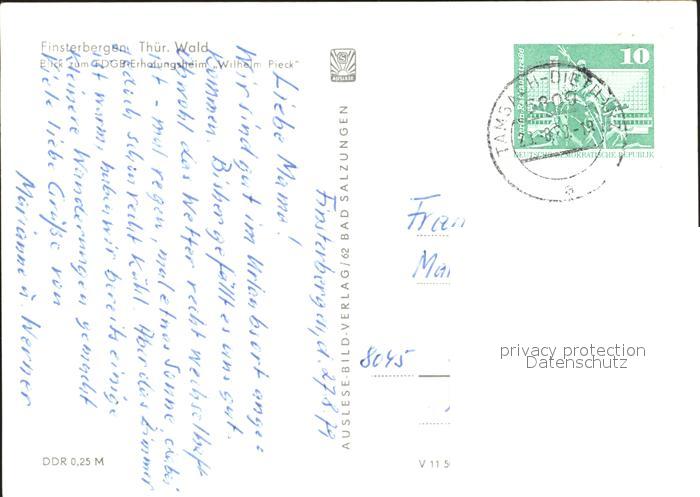 Finsterbergen, Thür. Wald
Blick zum FDGB-Erholungsheim „Wilhelm Pieck"
AUSLESE
Finsterbergen, d. 27.8.79
Liebe Mama!
Wir sind gut im Urlaubsort ange=
kommen. Bisher gefällt es uns gut.
Obwohl das Wetter recht wechselhaft
ist - mal regen, mal etwas Sonne, dabei
jedoch schon recht kühl. Aber das Zimmer
ist warm, haben wir bereits einige
kleinere Wanderungen gemacht
Viele liebe Grüße von
Marianne u. Werner
DDR 0,25 M
AUSLESE-BILD-VERLAG/62 BAD SALZUNGEN
V 11 50
10
DEUTSCHE DEMOKRATISCHE REPUBLIK
TAMBACH-DIETH
5809
a
Frau
Mar
8045
privacy protection
Datenschutz